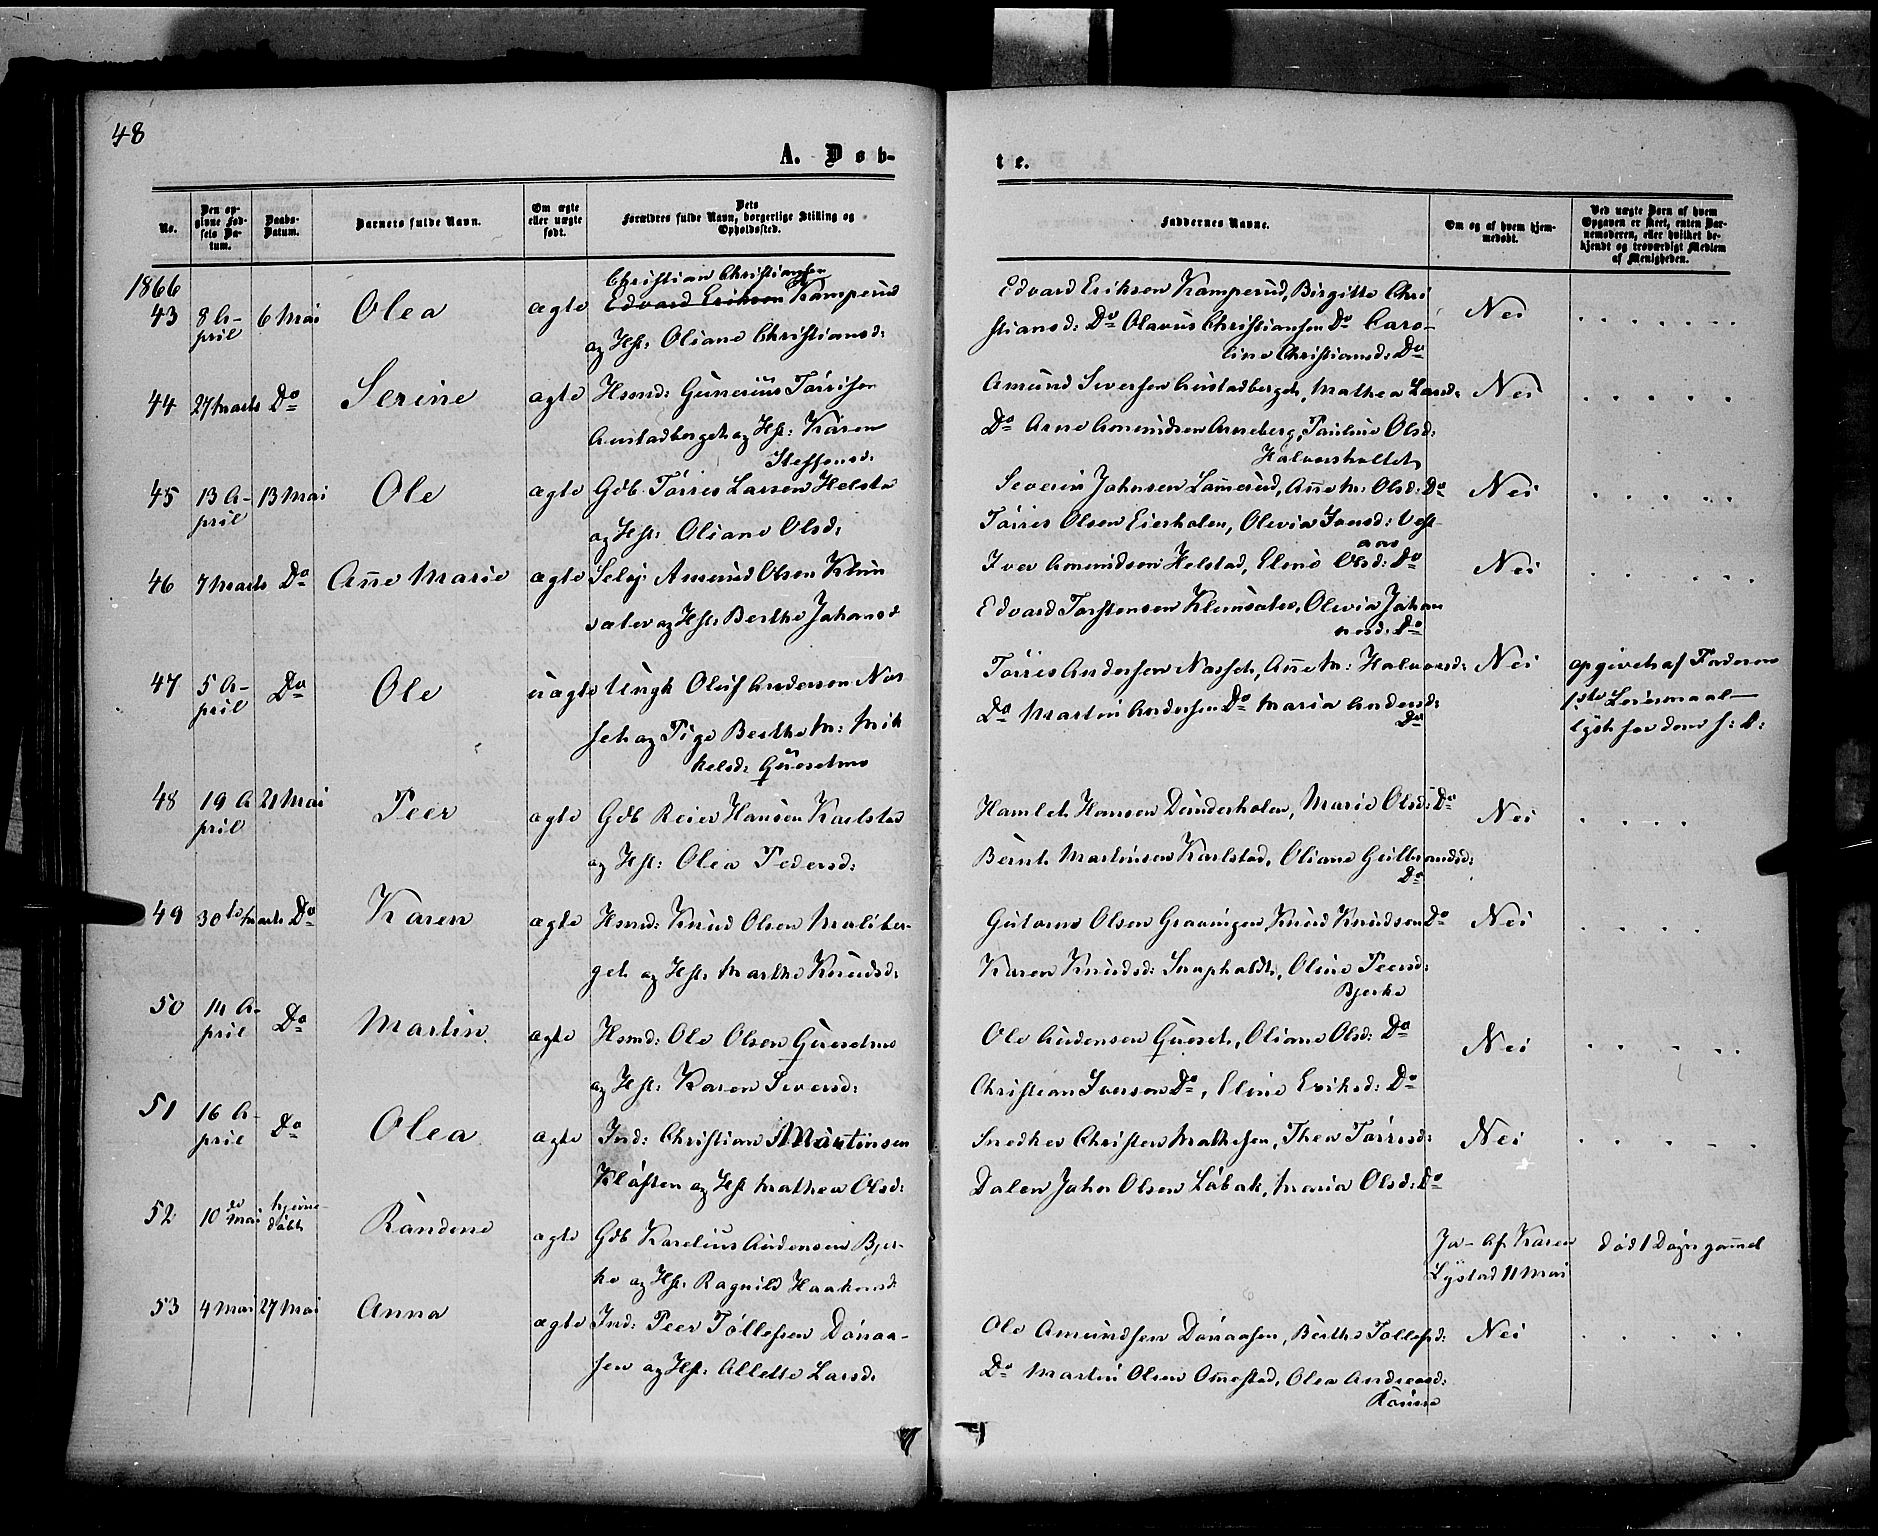 48
A. Døb-
te.
No.
Den op-
givne Fød-
sels Da-
tum.
Daabs-
Datum.
Barnets fulde Navn.
Om ægte
eller uægte
født.
Dets
Forældres fulde Navn, borgerlige Stilling og
Opholdssted.
Faddernes Navne.
Om og af hvem hjem-
medøbt.
Ved uægte Børn af hvem
Opgaven er skeet, enten Bar-
nemoderen, eller hvilket be-
kjendt og troværdigt Medlem
af Menigheden.
1866
43 8 A-
pril
6 Mai
Olea
ægte
Christian Christiansen
Edvard Eriksen Kamperud
og Hst: Oliane Christiansd:
Edvard Eriksen Kamperud, Birgitte Chri
stiansd: Do Olavus Christiansen Do Caro-
line Christiansd: Do
Nei
44 27 Marts Do
Serine
ægte
Hsmd: Gunerius Tørrisen
Austadberget og Hst: Karen
Steffensd:
Amund Iversen Austadberget, Mathea Larsd:
Do Arne Amundsen Arneberg, Pauline Olsd:
Halvorsholtet
Nei
45 13 A-
pril
13 Mai
Ole
ægte
Gdb: Tørris Larsen Helsta
og Hst: Oliane Olsd:
Severin Johnsen Lamerud, Anne M: Olsd: Do
Tørris Olsen Eierholen, Olevia
Nei
46 7 Marts Do
Anne Marie
ægte
Selvj Amund Olsen Klem
sæter og Hst: Berthe Johansd
Iver Amundsen Helstad, Eline Olsd: Do
Edvard Torstensen Klemsæter, Olevia Johan
nesd: Do
Nei
47 5 A-
pril
Do
Ole
uægte
Ungk Oluf Andersen Næs
set og Pige Berthe M: Mik
kelsd:
Tørris Andersen Næsset, Anne M: Halvorsd:
Do Martin Andersen Do Maria Andersd:
Do
Nei
opgivet af Faderen
1ste Leiermaal
lyst for dem
48 19 A
pril
21 Mai
Peer
ægte
Gdb Reier Hansen Karlstad
og Hst: Olea Pedersd:
Hamlet Hansen Dunderholen, Marie Olsd: Do
Bernt Martinsen Karlstad, Oliane Gulbrandsd:
Do
Nei
49 30te Marts Do
Karen
ægte
Hsmd: Knud Olsen Maliber-
get og Hst: Marthe Knudsd:
Guttorm Olsen Gravingen, Knud Knudsen Do
Karen Knudsd: Snapholdt, Oline Peersd:
Bjerke
Nei
50 14 A-
pril
Do
Martin
ægte
Hsmd: Ole Olsen
og Hst: Karen Iversd:
Ole Audensen Oliane Olsd: Do
Christian Iversen Do, Eline Eriksd: Do
Nei
51 16 A-
pril
Do
Olea
ægte
Ind: Christian Martinsen
Kløften og Hst Mathea Olsd:
Snedker Christen Mathisen, Thea Tørrisd:
Dalen John Olsen Løbak, Maria Olsd: Do
Nei
52 10de Mai
hjemme-
døbt
Randene
ægte
Gdb Karelius Audensen Bjer-
ke og Hst: Ragnild Haakensd:
Ja - Af Karen
Lystad 11 Mai
død 1 Døgn gammel
53 4 Mai 27 Mai
Anna
ægte
Ind: Peer Tollefsen Dønaa-
sen og Hst: Allette Larsd:
Ole Amundsen Dønaasen, Berthe Tollefsd:
Do Martin Olsen Omestad, Olea Andreasd:
Nei